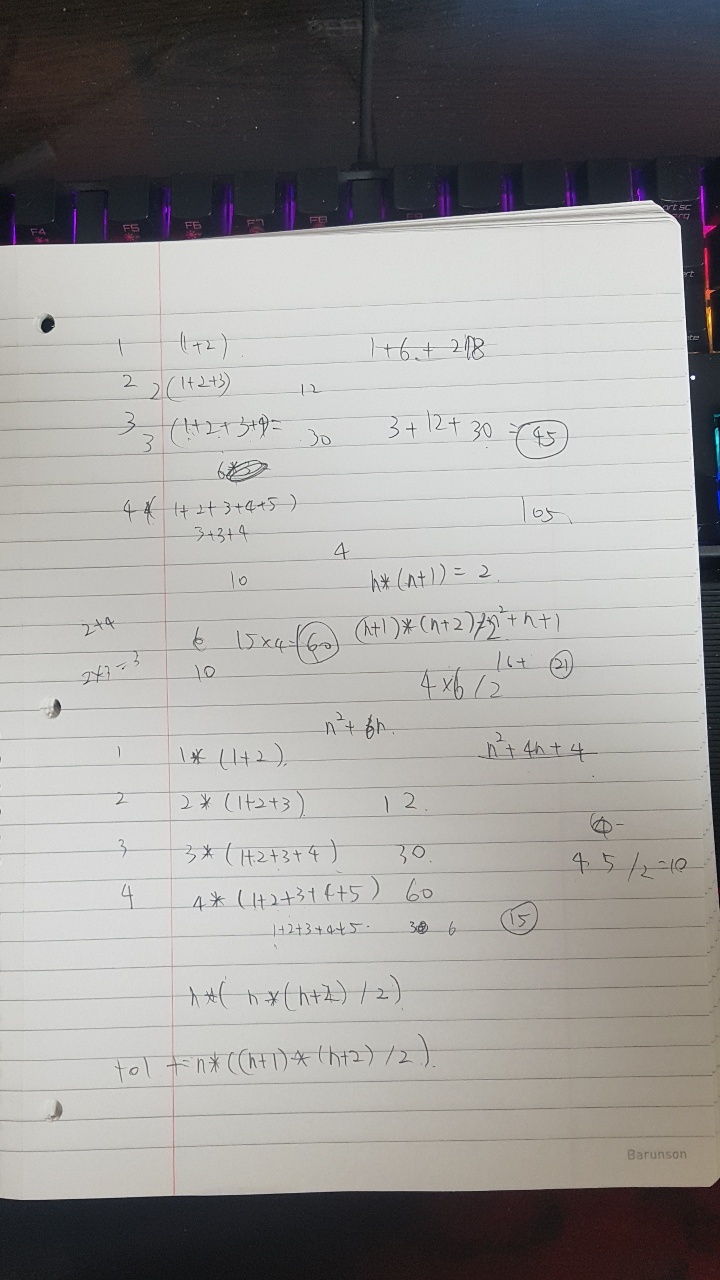 F4 F5 F6 F7 F8
1 (1+2) 1+6.+
2 2(1+2+3) 12
3 3 (1+2+3+4)= 30 3+12+30 =45
4 ( 1+2+3+4+5) 105
3+3+4
4
10 n*(n+1) = 2
2+4 6 15×4=60 (n+1)*(n+2)
10 16+ 21
4×6/2
1 1* (1+2). n²+4n+4
2 2*(1+2+3) 12.
3 3*(1+2+3+4) 30. 4.5/2=10
4 4*(1+2+3+4+5) 60
1+2+3+4+5. 6 15
n*( n*(n+2)/2)
tol += n*((n+1)*(n+2)/2).
Barunson